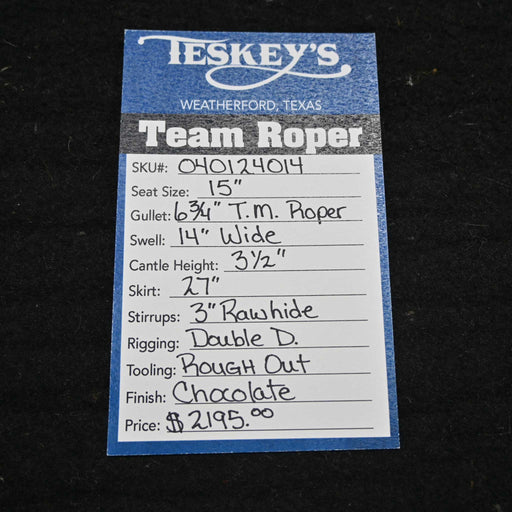 TESKEY'S
WEATHERFORD, TEXAS
Team Roper
SKU#: 040124014
Seat Size: 15"
Gullet: 6 3/4" T.M. Roper
Swell: 14" Wide
Cantle Height: 3 1/2"
Skirt: 27"
Stirrups: 3" Rawhide
Rigging: Double D.
Tooling: Rough Out
Finish: Chocolate
Price: $2195.00